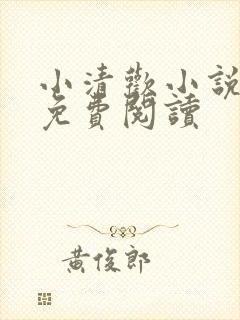 小清歡小說
免費閱讀
黃俊郎